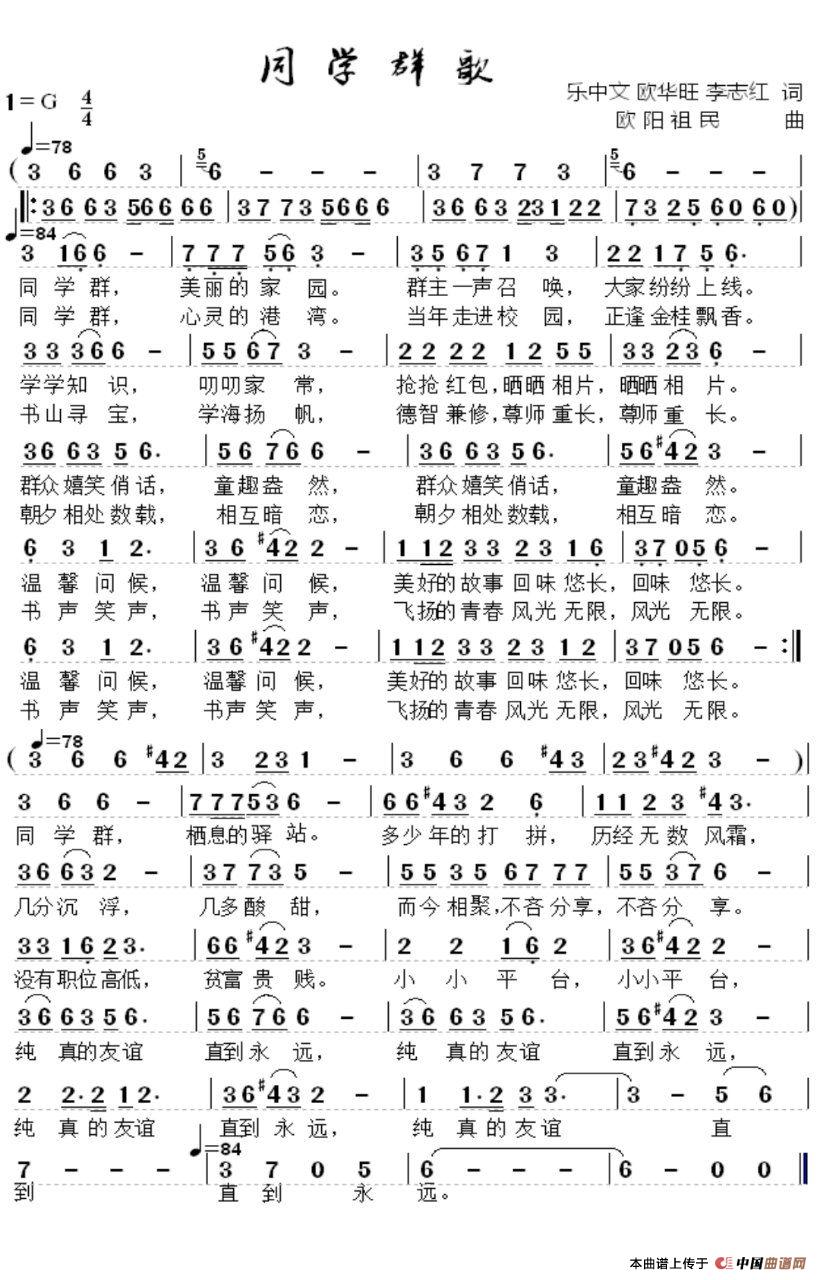 同学群歌
1=G 4/4
乐中文 欧华旺 李志红 词
欧阳祖民 曲
♩=78
(3 6 6 3 | 5 6 - - - | 3 7 7 3 | 5 6 - - - |
|: 36 63 566 66 | 37 73 566 6 | 36 63 231 22 | 73 25 60 60) |
♩=84
3 166 - | 777 56 3 - | 35 671 3 | 22 17 56. |
同学群， 美丽的家园。 群主一声召唤，大家纷纷上线。
同学群， 心灵的港湾。 当年走进校园，正逢金桂飘香。
33 366 - | 55 67 3 - | 22 22 12 55 | 33 23 6 - |
学学知识， 叨叨家常， 抢抢红包，晒晒相片，晒晒相片。
书山寻宝， 学海扬帆， 德智兼修，尊师重长，尊师重长。
36 63 56. | 56 766 - | 36 63 56. | 56 #42 3 - |
群众嬉笑俏话， 童趣盎然， 群众嬉笑俏话， 童趣盎然。
朝夕相处数载， 相互暗恋， 朝夕相处数载， 相互暗恋。
6 3 1 2. | 36 #42 2 - | 1 12 33 23 16 | 37 05 6 - |
温馨问候， 温馨问候， 美好的故事回味悠长，回味悠长。
书声笑声， 书声笑声， 飞扬的青春风光无限，风光无限。
6 3 1 2. | 36 #42 2 - | 1 12 33 23 12 | 37 05 6 - :|
温馨问候， 温馨问候， 美好的故事回味悠长，回味悠长。
书声笑声， 书声笑声， 飞扬的青春风光无限，风光无限。
♩=78
(3 6 6 #42 | 3 23 1 - | 3 6 6 #43 | 23 #42 3 -) |
3 6 6 - | 777 53 6 - | 66 #43 2 6 | 11 23 #43. |
同学群， 栖息的驿站。 多少年的打拼， 历经无数风霜，
36 63 2 - | 37 73 5 - | 55 35 67 77 | 55 37 6 - |
几分沉浮， 几多酸甜， 而今相聚，不吝分享，不吝分享。
33 16 23. | 66 #42 3 - | 2 2 16 2 | 36 #42 2 - |
没有职位高低， 贫富贵贱。 小小平台， 小小平台，
36 63 56. | 56 76 6 - | 36 63 56. | 56 #42 3 - |
纯真的友谊 直到永远， 纯真的友谊 直到永远，
2 2.2 12. | 36 #43 2 - | 1 1.2 3 3. | 3 - 5 6 |
纯真的友谊 直到永远， 纯真的友谊 直
♩=84
7 - - - | 3 7 0 5 | 6 - - - | 6 - 0 0 ‖
到 直到永远。
本曲谱上传于 中国曲谱网